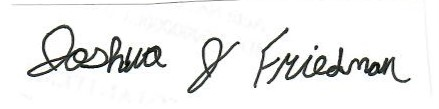 Joshua J Friedman